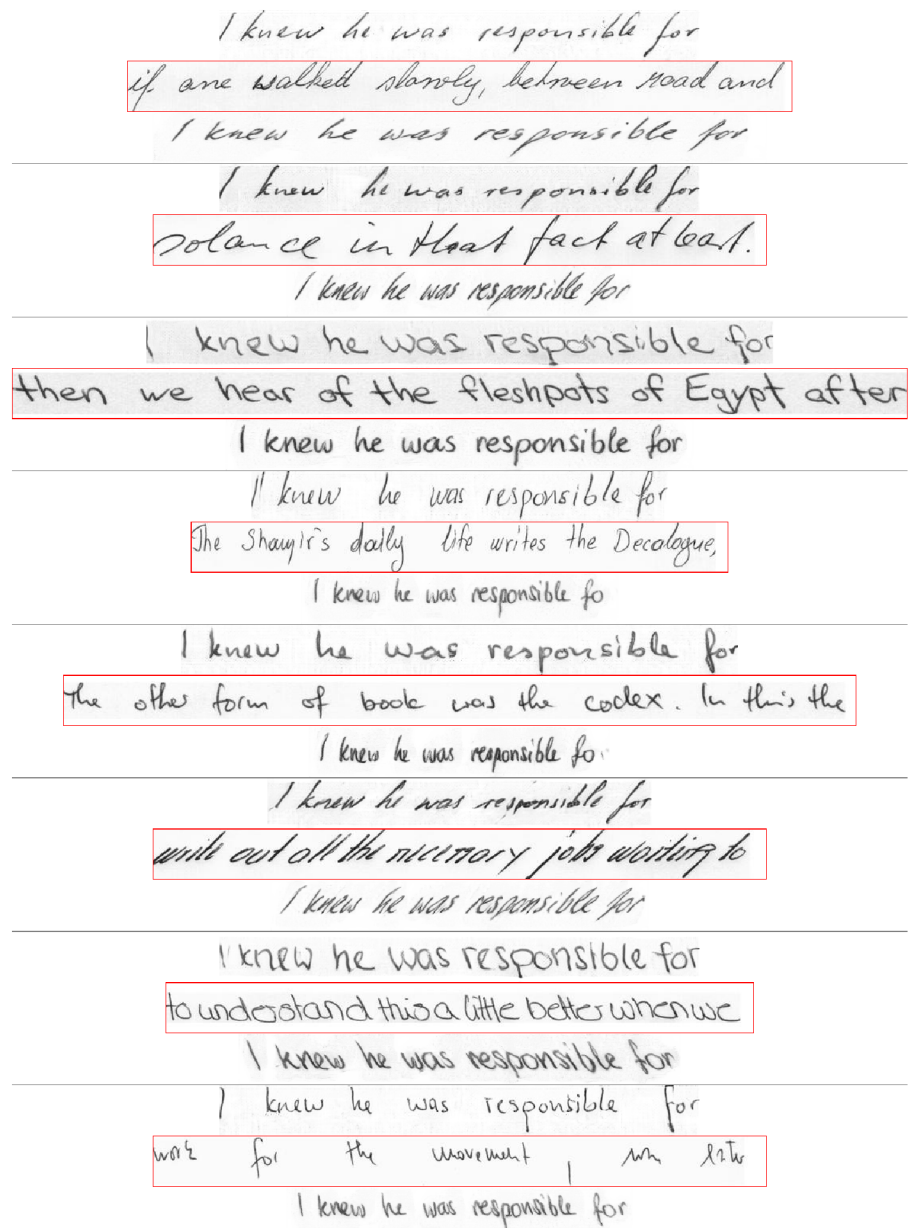 I knew he was responsible for
if one walked slowly, between road and
I knew he was responsible for
I knew he was responsible for
solance in that fact at least.
I knew he was responsible for
I knew he was responsible for
then we hear of the fleshpots of Egypt after
I knew he was responsible for
I knew he was responsible for
The daily life writes the Decalogue,
I knew he was responsible fo
I knew he was responsible for
The other form of book was the codex. In this the
I knew he was responsible fo
I knew he was responsible for
write out all the necessary jobs waiting to
I knew he was responsible for
I knew he was responsible for
to understand this a little better when we
I knew he was responsible for
I knew he was responsible for
work for the movement,
I knew he was responsible for